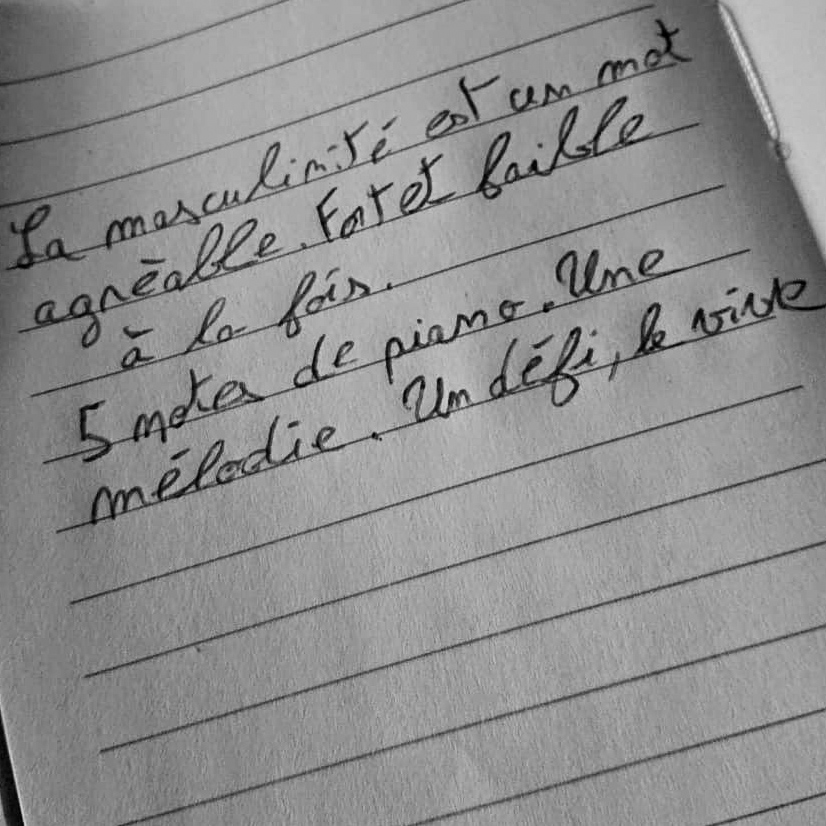 La masculinité est un mot
agréable. Fort et faible
à la fois.
5 notes de piano. Une
mélodie. Un défi, le vivre